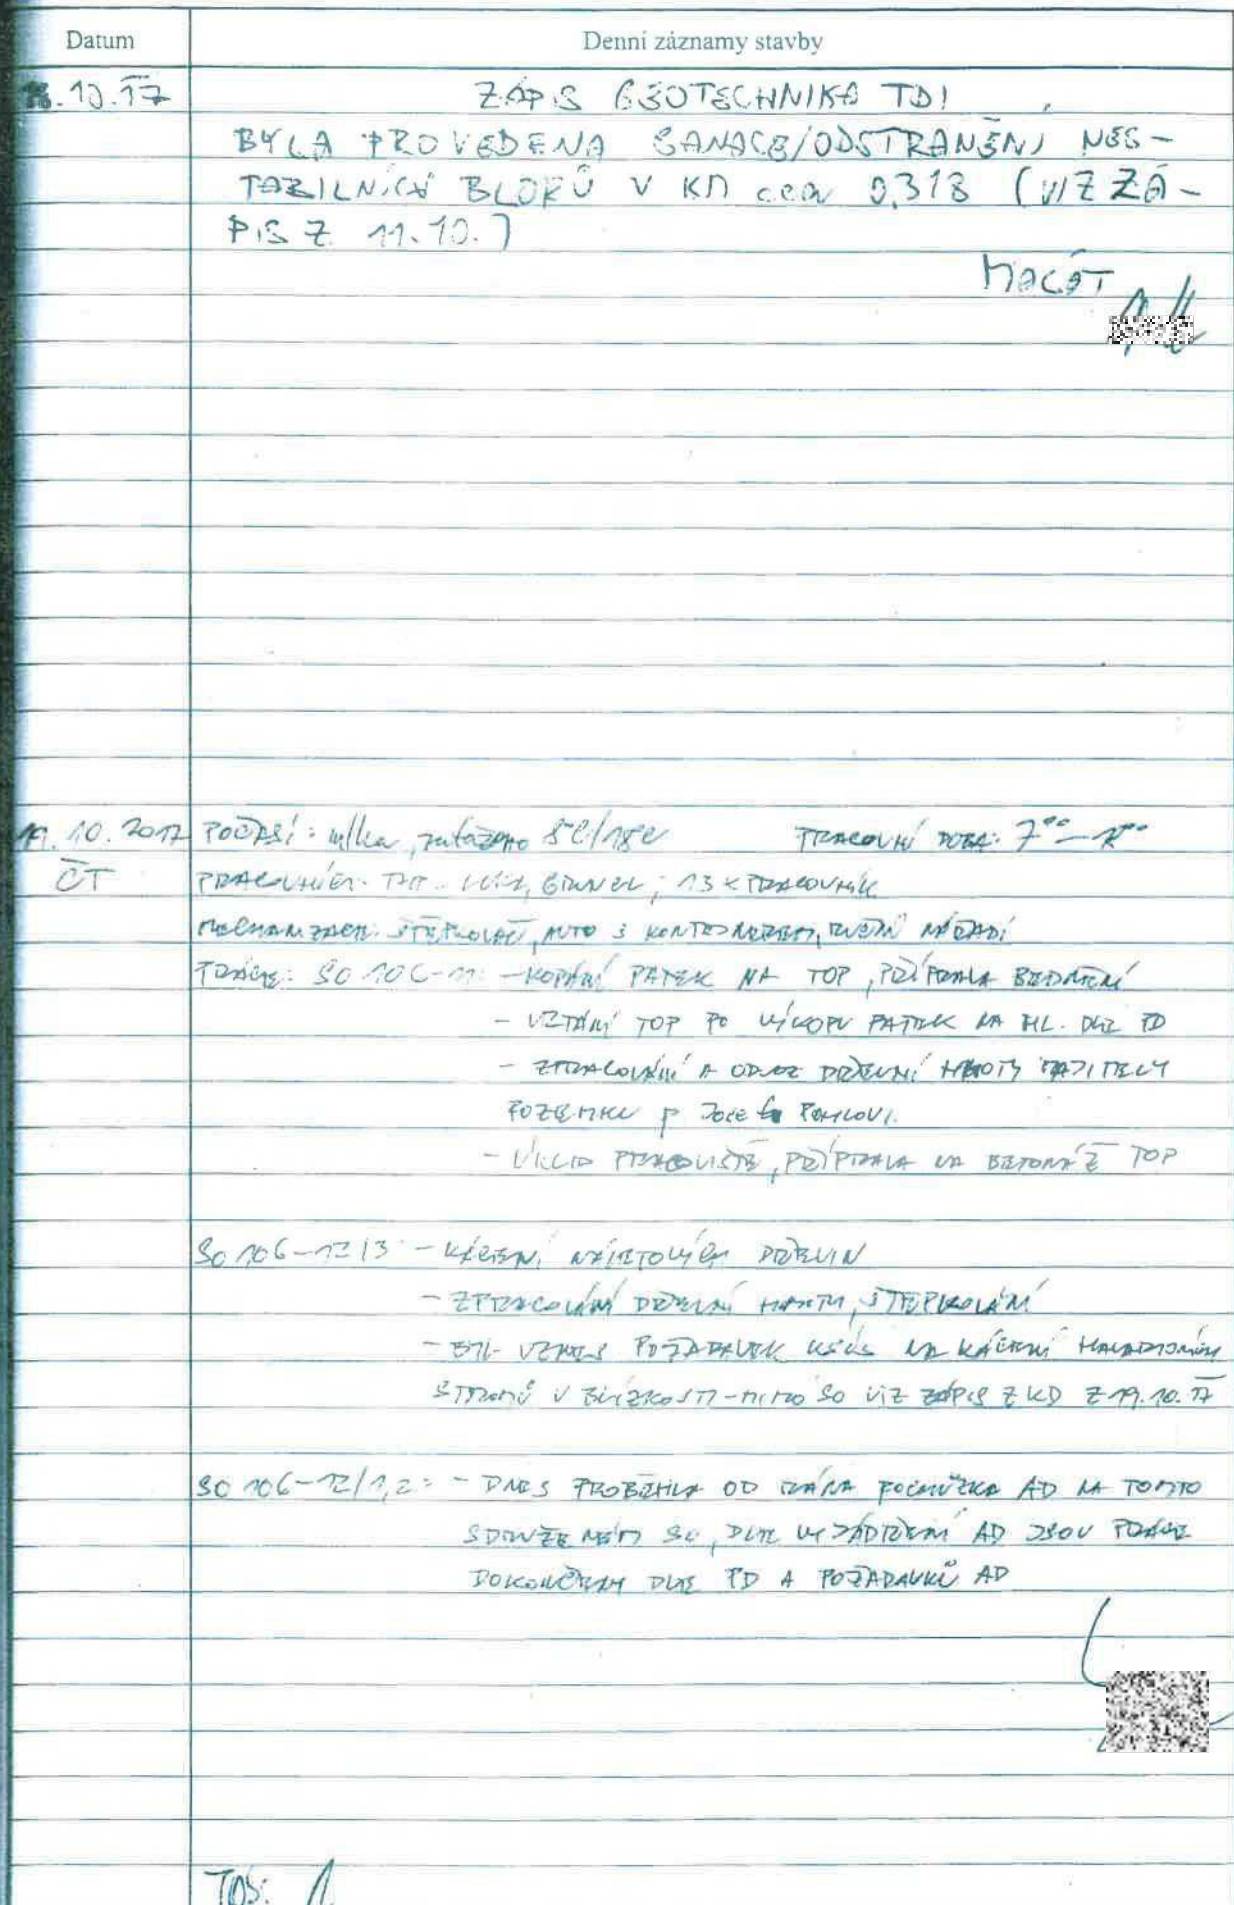 Datum Denní záznamy stavby
.10.17 ZÁPIS GEOTECHNIKA TDI
BYLA PROVEDENA SANACE/ODSTRANĚNÍ NES-
TABILNÍCH BLOKŮ V KM cca 0,318 (VIZ ZÁ-
PIS Z 11.10.)
MACÁT
19.10.2017 POČASÍ: mlha, zataženo 8°C/18°C PRACOVNÍ DOBA: 7⁰⁰ -
ČT PRACOVNÍCI: THP - 13 x PRACOVNÍK
MECHANIZACE: ŠTĚPKOVAČ, AUTO S KONTEJNEREM, RUČNÍ NÁŘADÍ
PRÁCE: SO 106-11: - KOPÁNÍ PATEK NA TOP, PŘÍPRAVA BEDNĚNÍ
- VZTÝČENÍ TOP PO VÝKOPU PATEK NA HL. DLE PD
- ZPRACOVÁNÍ A ODVOZ DŘEVNÍ HMOTY MAJITELI
POZEMKU p.
- ÚKLID PRACOVIŠTĚ, PŘÍPRAVA NA BETONÁŽ TOP
SO 106-12/3 - KÁCENÍ NÁLETOVÝCH DŘEVIN
- ZPRACOVÁNÍ DŘEVNÍ HMOTY, ŠTĚPKOVÁNÍ
- BYL VZNESEN POŽADAVEK KSÚS NA KÁCENÍ HAVARIJNÍCH
STROMŮ V BLÍZKOSTI - MIMO SO VIZ ZÁPIS Z KD Z 19.10.17
SO 106-12/1,2: - DNES PROBĚHLA OD RÁNA POCHŮZKA AD NA TOMTO
SDRUŽENÉM SO, DLE VYJÁDŘENÍ AD JSOU PRÁCE
DOKONČENY DLE PD A POŽADAVKŮ AD
TDS: